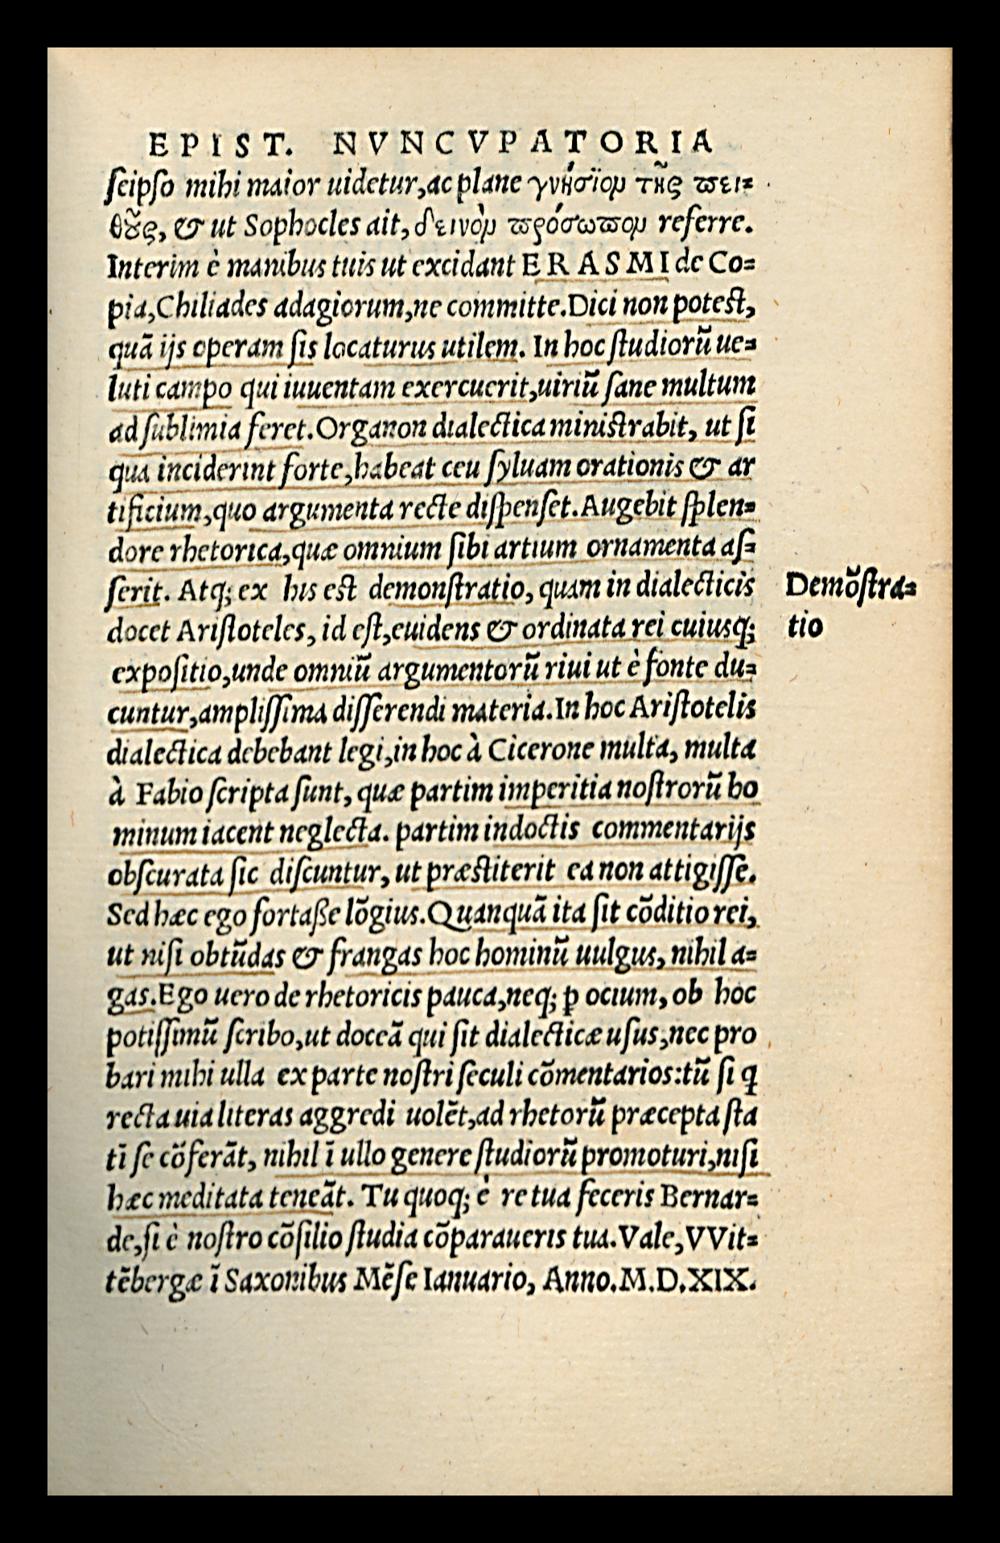 EPIST. NVNCVPATORIA
ſeipſo mihi maior uidetur, ac plane γνήσϊον τῆς πει=
θȣ̃ς, & ut Sophocles ait, δεινὸν πρόσωπον referre.
Interim è manibus tuis ut excidant ERASMI de Co=
pia, Chiliades adagiorum, ne committe. Dici non poteſt,
quā ijs operam ſis locaturus utilem. In hoc ſtudiorū ue=
luti campo qui iuuentam exercuerit, uiriū ſane multum
ad ſublimia feret. Organon dialectica miniſtrabit, ut ſi
qua inciderint forte, habeat ceu ſyluam orationis & ar
tificium, quo argumenta recte diſpenſet. Augebit ſplen=
dore rhetorica, quæ omnium ſibi artium ornamenta aſ=
ſerit. Atq; ex his eſt demonſtratio, quam in dialecticis
Demōſtra=
tio
docet Ariſtoteles, id eſt, euidens & ordinata rei cuiusq;
expoſitio, unde omniū argumentorū riui ut è fonte du=
cuntur, ampliſſima diſſerendi materia. In hoc Ariſtotelis
dialectica debebant legi, in hoc à Cicerone multa, multa
à Fabio ſcripta ſunt, quæ partim imperitia noſtrorū ho
minum iacent neglecta. partim indoctis commentarijs
obſcurata ſic diſcuntur, ut præſtiterit ea non attigiſſe.
Sed hæc ego fortaße lōgius. Quanquā ita ſit cōditio rei,
ut niſi obtūdas & frangas hoc hominū uulgus, nihil a=
gas. Ego uero de rhetoricis pauca, neq; ꝑ ocium, ob hoc
potiſſimū ſcribo, ut doceā qui ſit dialecticæ uſus, nec pro
bari mihi ulla ex parte noſtri ſeculi cōmentarios: tū ſi q
recta uia literas aggredi uolēt, ad rhetorū præcepta ſta
tī ſe cōferāt, nihil ī ullo genere ſtudiorū promoturi, niſi
hæc meditata teneāt. Tu quoq; è re tua feceris Bernar=
de, ſi è noſtro cōſilio ſtudia cōparaueris tua. Vale, VVit=
tēbergæ ī Saxonibus Mēſe Ianuario, Anno. M.D.XIX.